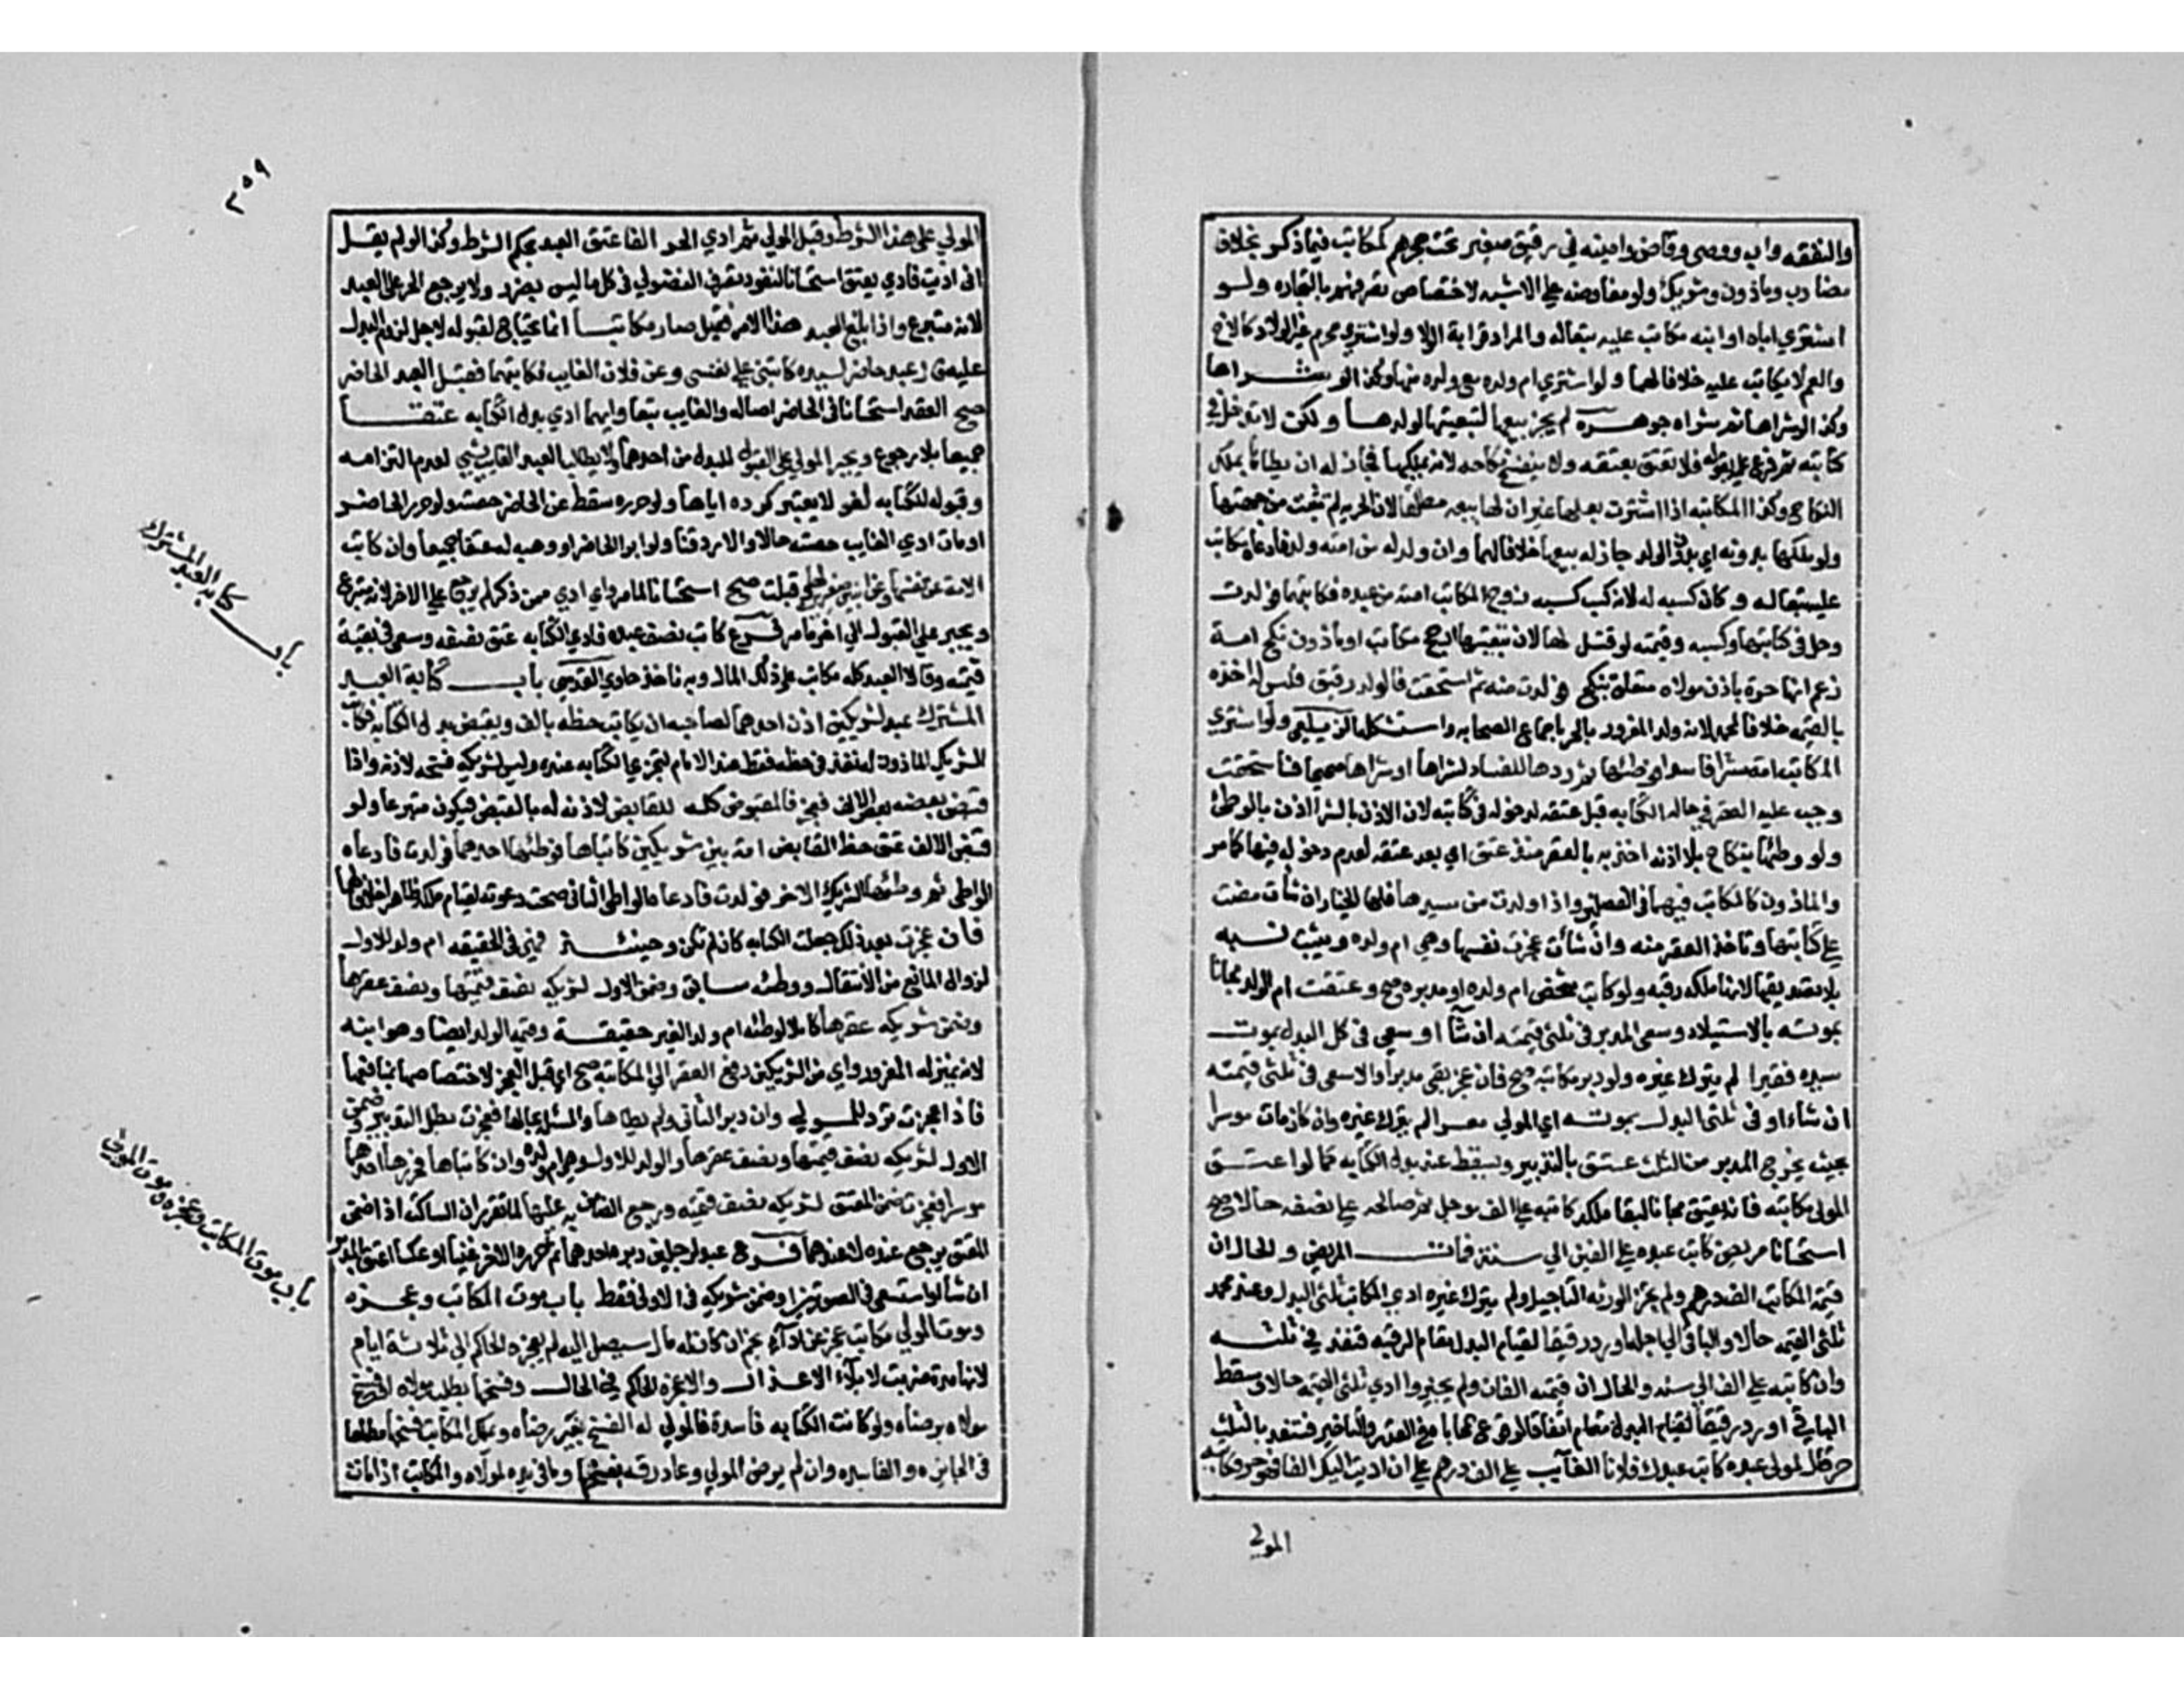 والنفقه واب ووصي وقاض وامينه في رقيق صغير تحت حجرهم كمكاتب فيما ذكر بخلاف
مضارب وماذون وشريك ولو مفاوضه علي الاشبه لاختصاص تصرفهم بالتجاره ولو
اشتري اباه او ابنه مكاتب عليه تبعا له والمراد قرابة الولا ولو اشتري محرم غير الولاد كالاخ
والعم لا يكاتب عليه خلافا لهما ولو اشتري ام ولده مع ولده منها وكذا لو شراها
وكذا لو شراها ثم شراه جوهره لم يجز بيعها لتبعيتها لولدها ولكن لا تدخل في
كتابته ثم فرع علي بقوله فلا تعتق بعتقه ولا ينفسخ نكاحه لانه لم يملكها فجاز له ان يطاها بملك
النكاح وكذا المكاتبه اذا اشترت بعلها غير ان لها بيعه مطلقا لان الحريه لم تثبت من جهتها
ولو ملكها بدونه اي بدون الولد جاز له بيعها خلافا لهما وان ولد له من امته ولد فادعاه مكاتب
عليه تبعا له وكان كسبه له لانه كسب كسبه زوج المكاتب امته من عبده فكاتبهما فولدت
دخل في كتابتها وكسبه وقيمته لو قتل لها لان تبعيتها ارجح مكاتب او ماذون نكح امة
زعم انها حرة باذن مولاه متعلق بنكح فولدت منه ثم استحقت فالولد رقيق فليس له اخذه
بالقيمه خلافا لمحمد لانه ولد المغرور بالحر باجماع الصحابه واستشكله الزيلعي ولو اشتري
المكاتب امته شرا فاسدا فوطئها ثم ردها للفساد لشراها او شراها صحيحا فاستحقت
وجب عليه العقر في حاله الكتابه قبل عتقه لدخوله في كتابته لان الاذن بالشرا اذن بالوطئ
ولو وطئها بنكاح بلا اذنه اخذ به بالعقر منذ عتق اي بعد عتقه لعدم دخوله فيها كما مر
والماذون كالمكاتب فيهما في الفصلين واذا ولدت من سيدها فلها الخيار ان شات مضت
علي كتابتها وتاخذ العقر منه وان شات عجزت نفسها وهي ام ولده ويثبت نسبه
بلا تصديقها لانها ملكه رقبه ولو كاتب شخص ام ولده او مدبره صح وعتقت ام الولد مجانا
بموته بالاستيلاد وسعي المدبر في ثلثي قيمته ان شا او سعي في كل البدل بموت
سيده فقيرا لم يترك غيره ولو دبر مكاتبه صح فان عجز بقي مدبرا والا سعي في ثلثي قيمته
ان شاء او في ثلثي البدل بموته اي المولي معسرا لم يترك غيره وان كان مات موسرا
بحيث يخرج المدبر من الثلث عتق بالتدبير وسقط عنه بدل الكتابه كما لو اعتق
المولي مكاتبه فانه يعتق مجانا لبقا ملكه كاتبه علي الف موجل ثم صالحه علي نصفه حالا صح
استحسانا مريض كاتب عبده علي الفين الي سنة فمات المريض والحال ان
قيمة المكاتب الف درهم ولم يجز الورثه التاجيل ولم يترك غيره ادي المكاتب ثلثي البدل وعند محمد
ثلثي القيمه حالا والباقي الي اجله او رد رقيقا لقيام البدل مقام الرقبه فتنفذ في ثلثه
وان كاتبه علي الف الي سنه والحال ان قيمته الفان ولم يجيزوا ادي ثلثي القيمه حالا وسقط
الباقي او رد رقيقا لقيام البدل مقام اتفاقا لوقوع المحاباه في القدر والتاخير فتنفذ بالثلث
حر قال لمولي عبده كاتب عبدك فلانا الغايب علي الف درهم علي ان اديت اليك الفا فهو حر فكاتبه
المولي
٣٥٩
المولي علي هذا الشرط وقبل المولي ثم ادي الحر الفا عتق العبد بحكم الشرط وكذا لو لم يقل
ان اديت فادي يعتق استحسانا لنفوذ تصرف الفضولي في كل ما ليس بضرر ولا يرجع الحر علي العبد
لانه متبرع واذا بلغ العبد هذا الامر فقبل صار مكاتبا انما يحتاج لقبوله لاجل لزوم البدل
عليه قال عبد حاضر لسيده كاتبني علي نفسي وعن فلان الغايب فكاتبهما فقبل العبد الحاضر
صح العقد استحسانا في الحاضر اصاله والغايب تبعا وايهما ادي بدل الكتابه عتقا
جميعا بلا رجوع ويجبر المولي علي القبول للبدل من احدهما ولا يطالب العبد الغايب بشي لعدم التزامه
وقبوله للكتابه لغو لا يعتبر كرده اياها ولو حرره سقط عن الحاضر حصته ولو حرر الحاضر
او مات ادي الغايب حصته حالا والا رد قنا ولو ابرا الحاضر او وهبه له عتقا جميعا وان كاتب
الامة عن نفسها وعن ابنين صغيرين لها قبلت صح استحسانا لما مر واي ادي ممن ذكر لم يرجع علي الاخر لانه متبرع
ويجبر علي القبول الي اخر ما مر فرع كاتب نصف عبده فادي الكتابه عتق نصفه وسعي في بقية
قيمته وقالا العبد كله مكاتب علي ذلك المال وبه ناخذ حاوي القدسي باب كتابة العبد
المشترك عبد لشريكين اذن احدهما لصاحبه ان يكاتب حظه بالف ويقبض بدل الكتابه فكاتب
الشريك الماذون له نفذ في حظه فقط عند الامام لتجزي الكتابه عنده وليس لشريكه فسخه لاذنه واذا
قبض بعضه بعض الالف فعجز فالمقبوض كله للقابض لاذنه له بالقبض فيكون متبرعا ولو
قبض الالف عتق حظ القابض امة بين شريكين كاتباها فوطئها احدهما فولدت فادعاه
الواطي ثم وطئها الشريك الاخر فولدت فادعاه الواطي الثاني صحت دعوته لقيام ملكه ظاهرا
فان عجزت بعد ذلك جعلت الكتابه كان لم تكن وحينئذ فهي في الحقيقه ام ولد للاول
لزوال المانع من الانتقال ووطئه سابق وضمن الاول لشريكه نصف قيمتها ونصف عقرها
وضمن شريكه عقرها كاملا لوطئه ام ولد الغير حقيقة وقيمة الولد ايضا وهو ابنه
لانه بمنزله المغرور واي من الشريكين دفع العقر الي المكاتبه صح اي قبل العجز لاختصاصها بمنافعها
فاذا عجزت ترد للمولي وان دبر الثاني ولم يطاها والمسئلة بحالها فعجزت بطل التدبير وضمن
الاول لشريكه نصف قيمتها ونصف عقرها والولد للاول وهي ام ولده وان كاتباها فحررها احدهما
موسرا فعجزت ضمن المعتق لشريكه نصف قيمته ورجع الضامن به عليها لما تقرر ان الساكت اذا ضمن
المعتق يرجع عنده لا عندهما فروع عبد لرجلين دبره احدهما ثم حرره الاخر غنيا او عكسا اعتق المدبر
ان شا او استسعي في الصورتين او ضمن شريكه في الاولي فقط باب موت المكاتب وعجزه
وموت المولي مكاتب عجز عن اداء نجم ان كان له مال سيصل اليه لم يعجزه الحاكم الي ثلاثة ايام
لانها مدة ضربت لابلاء الاعذار والا عجزه الحاكم في الحال وفسخها بطلب مولاه او فسخ
مولاه برضاه ولو كانت الكتابه فاسدة فالمولي له الفسخ بغير رضاه ويملك المكاتب فسخها مطلقا
في الجايزه والفاسده وان لم يرض المولي وعاد رقه بفسخها وما في يده لمولاه والمكاتب اذا مات
باب كتابة العبد المشترك
باب موت المكاتب وعجزه وموت المولي